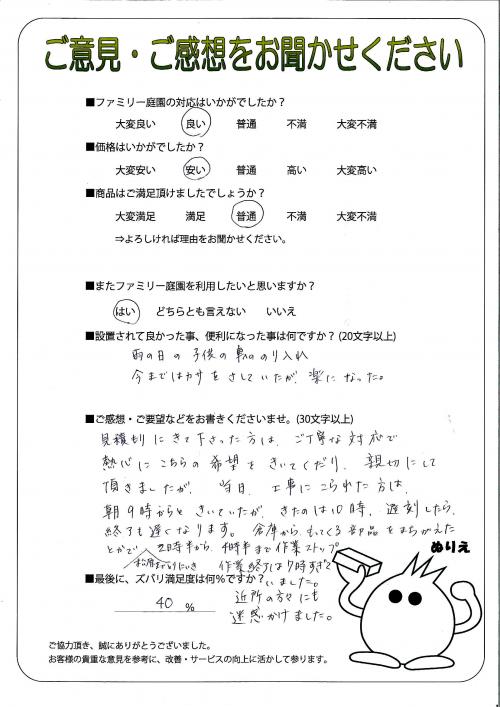 ご意見・ご感想をお聞かせください
■ファミリー庭園の対応はいかがでしたか？
大変良い 良い 普通 不満 大変不満
■価格はいかがでしたか？
大変安い 安い 普通 高い 大変高い
■商品はご満足頂けましたでしょうか？
大変満足 満足 普通 不満 大変不満
⇒よろしければ理由をお聞かせください。
■またファミリー庭園を利用したいと思いますか？
はい どちらとも言えない いいえ
■設置されて良かった事、便利になった事は何ですか？(20文字以上)
雨の日の子供の車へののり入れ
今まではカサをさしていたが、楽になった。
■ご感想・ご要望などをお書きくださいませ。(30文字以上)
見積もりにきて下さった方は、ご丁寧な対応で
熱心にこちらの希望をきいてくだり、親切にして
頂きましたが、当日、工事にこられた方は、
朝9時からときいていたが、きたのは10時、遅刻したら、
終了も遅くなります。倉庫からもってくる部品をまちがえた
とかで 2時半から、4時半まで作業ストップ
作業終了は7時すぎて
いました。
ぬりえ
■最後に、ズバリ満足度は何%ですか？
近所の方々にも
40 %
迷惑かけました。
ご協力頂き、誠にありがとうございました。
お客様の貴重な意見を参考に、改善・サービスの向上に活かして参ります。